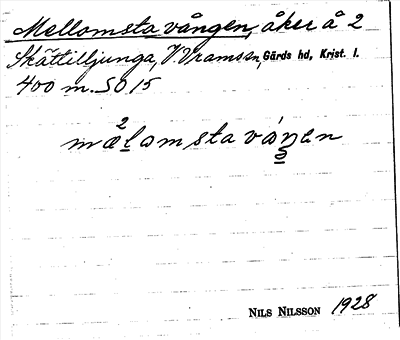 Mellomsta vången, åker å 2
Skättilljunga, V. Vramsån, Gärds hd, Krist. l.
400 m. SO 15
mælomsta våŋen
NILS NILSSON 1928